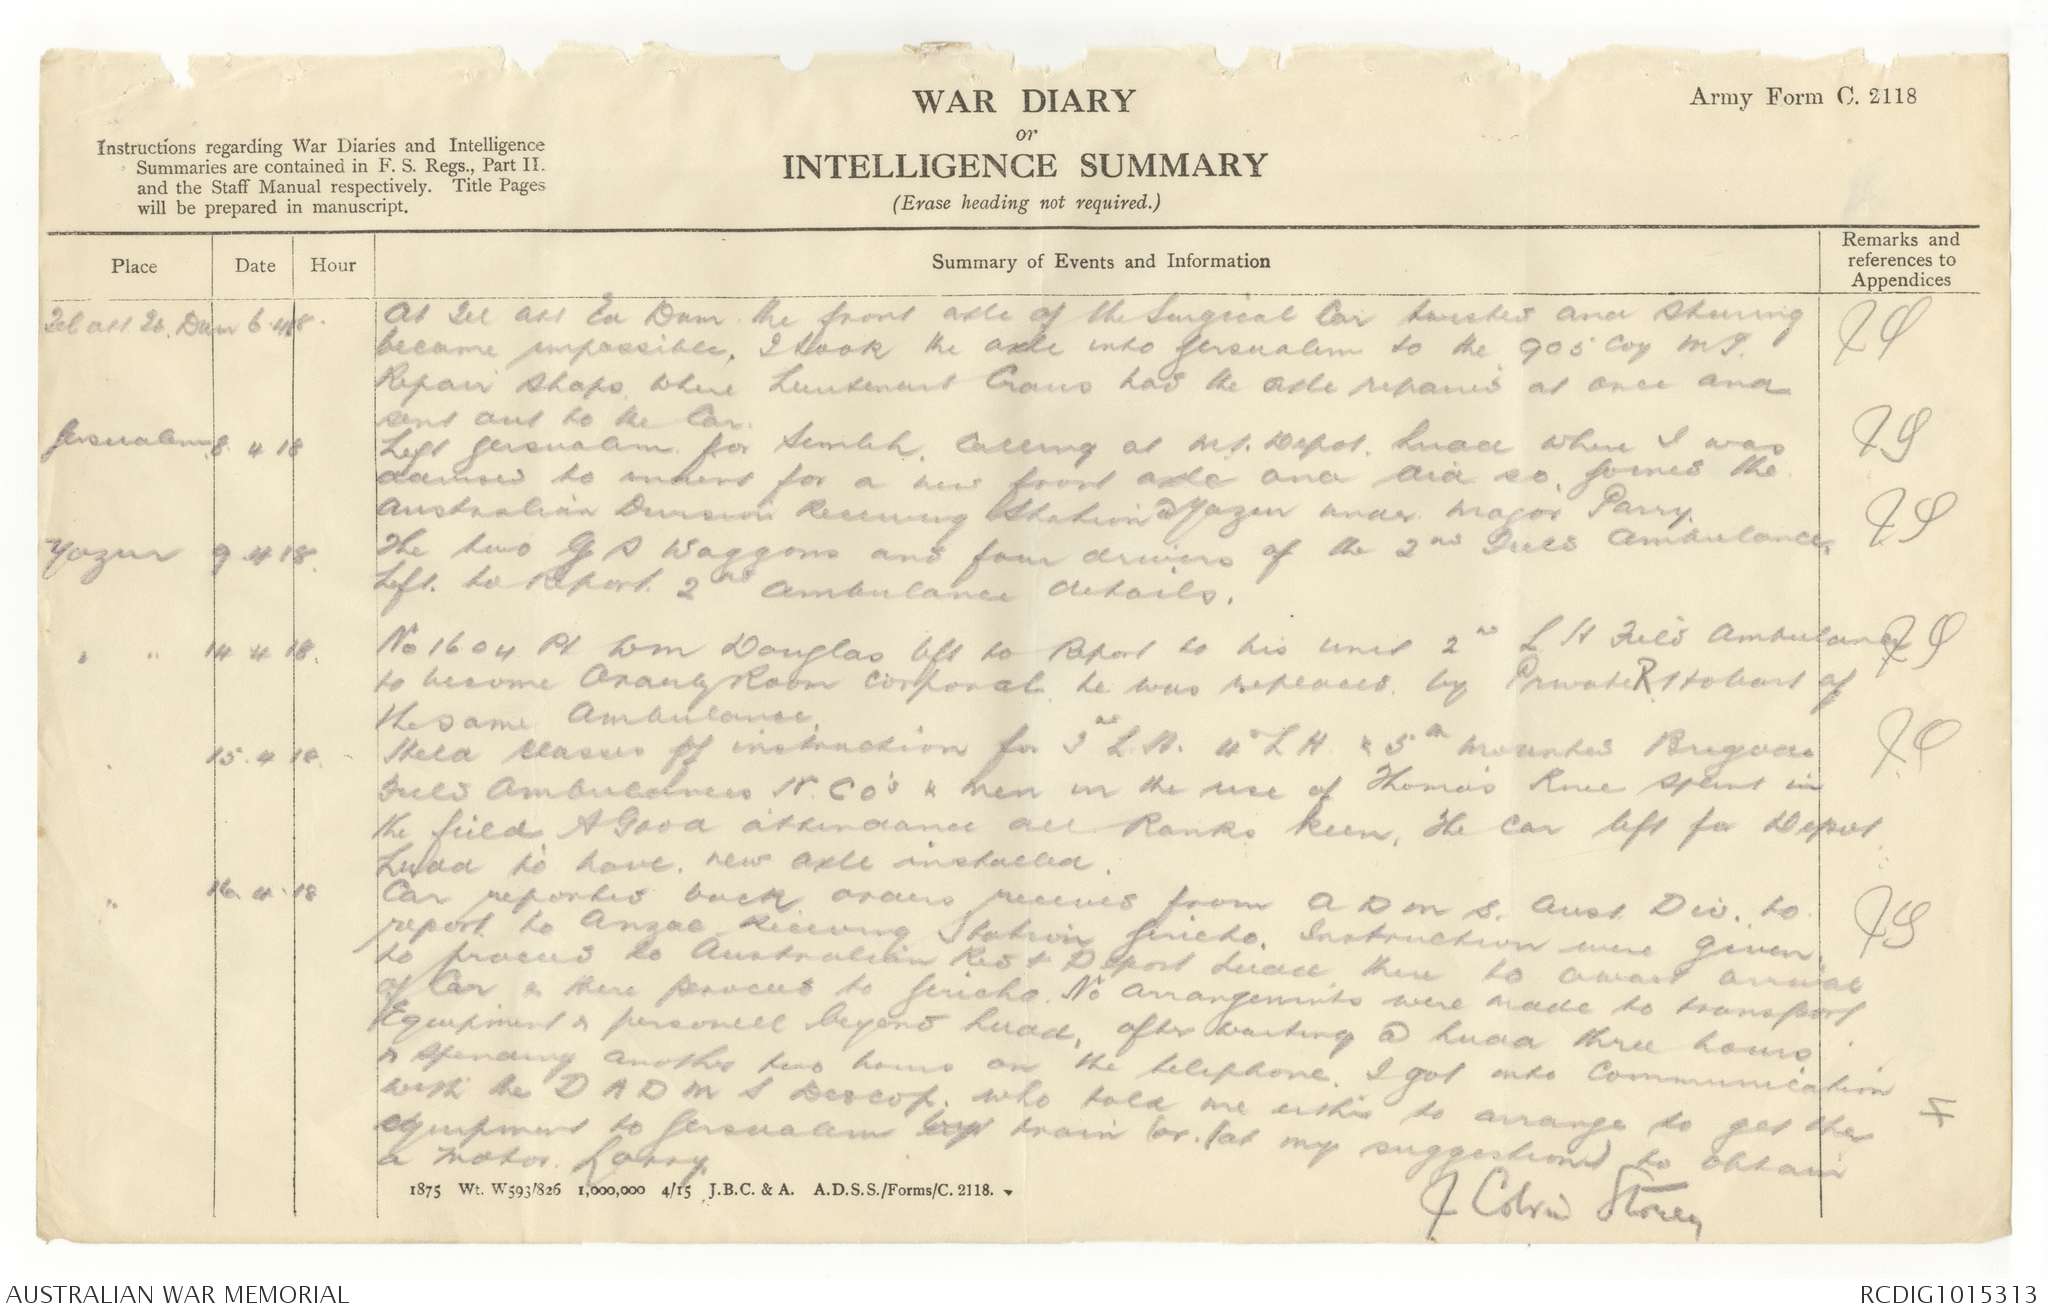 WAR DIARY
or
INTELLIGENCE SUMMARY
(Erase heading not required.)
Army Form C. 2118
Instructions regarding War Diaries and Intelligence
Summaries are contained in F. S. Regs., Part II.
and the Staff Manual respectively. Title Pages
will be prepared in manuscript.
Place
Date
Hour
Summary of Events and Information
Remarks and
references to
Appendices
6.4.18. At Tel att Ed Dum the front axle of the Surgical Car twisted and stearing
became impossible, I took the axle into Jersualem to the 905 Coy M.T.
Repair shops where Lieutenant had the axle repaired at once and
sent out to the Car.
Jersualem 8 4 18 Left Jersualem for Semleh, calling at M.T. Depot. Ludd where I was
advised to indent for a new front axle and did so, joined the
Australian Division Receiving Station @ Yazur under Major Parry.
Yazur 9.4.18. The two G S Waggons and four drivers of the 2nd Field Ambulance,
left to Report 2nd Ambulance details.
" " 14 4 18. No 1604 Pt Wm Douglas left to Report to his unit 2nd L H Field Ambulance
to become Orderly Room corporal he was replaced by Private R Hobart of
the same Ambulance.
" 15.4.18. Held classes of instruction for 3rd L.H. 4th L H. & 5th Mounted Brigade
Field Ambulances N.C.O's & men in the use of Thomas Knee splint in
the field. A Good attendance all Ranks keen, The car left for Depot
Ludd to have new axle installed.
" 16.4.18 Car reported back orders received from A D M S. Aust. Div. to
report to Anzac Receiving Station Jericho. Instruction were given
to proceed to Australian Rest Depot Ludd there to await arrival
of Car & there proceed to Jericho. No arrangements were made to transport
Equipment & personell beyond Ludd, after waiting @ Ludd three hours
& spending another two hours on the telephone. I got into communication
with the D A D M S Descop. who told me either to arrange to get the
equipment to Jersualem by train or (at my suggestion) to obtain
a Motor Lorry.
J Colvin Storey
1875 Wt. W593/826 1,000,000 4/15 J.B.C. & A. A.D.S.S./Forms/C. 2118.
AUSTRALIAN WAR MEMORIAL
RCDIG1015313